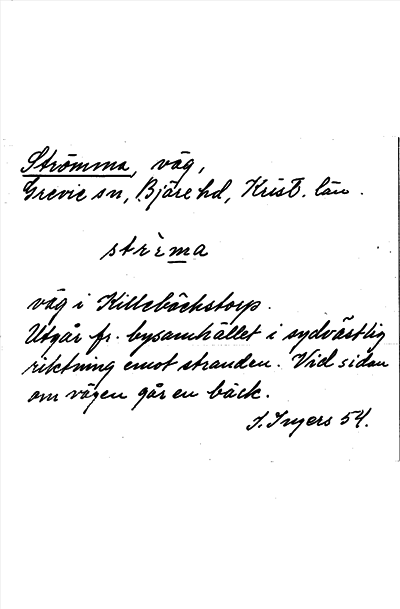 Strömma, väg,
Grevie sn, Bjäre hd, Krist. län.
strèma
väg i Killebäckstorp.
Utgår fr. bysamhället i sydvästlig
riktning emot stranden. Vid sidan
om vägen går en bäck.
I. Ingers 54.